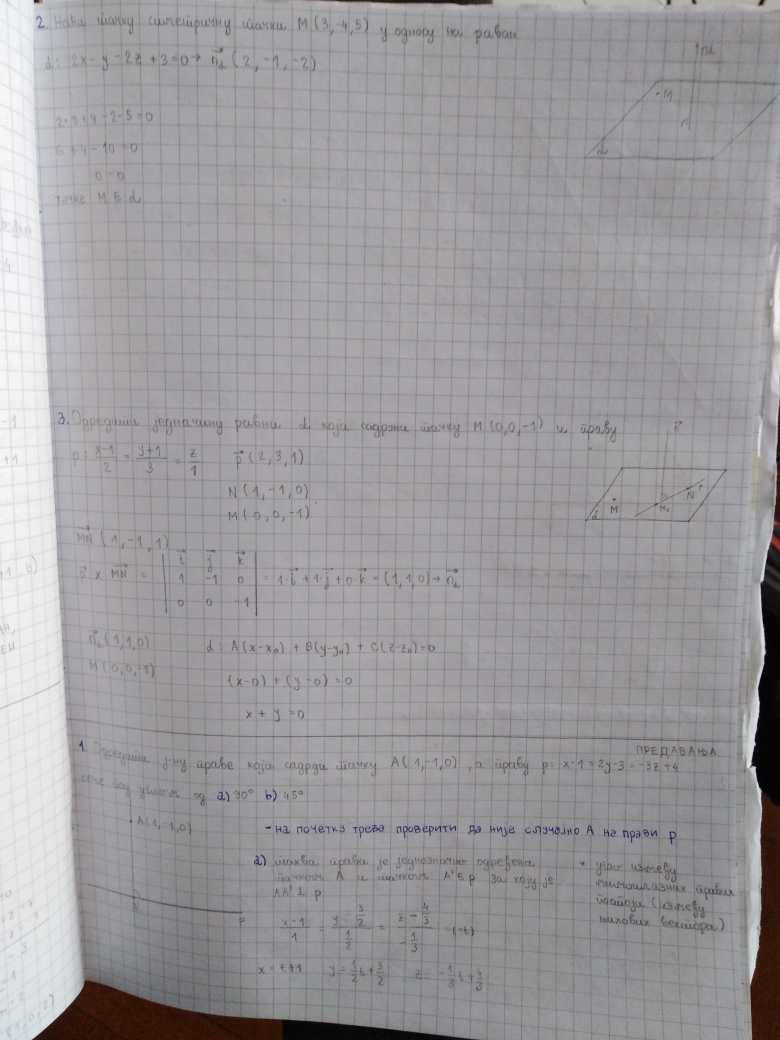 2. Наћи тачку симетричну тачки M(3,-4,5) у односу на раван
α: 2x-y-2z+3=0 → n⃗α (2,-1,-2)
nα
M
n
α
2·3+4-2·5=0
6+4-10=0
0=0
тачка M ∈ α
3. Одредити једначину равни α која садржи тачку M(0,0,-1) и праву
p: (x-1)/2 = (y+1)/3 = z/1 p⃗(2,3,1)
N(1,-1,0)
M(0,0,-1)
α M N p
MN⃗ (1,-1,1)
i⃗ j⃗ k⃗
x MN⃗ = | 1 -1 0 | = 1·i⃗+1·j⃗+0·k⃗ = (1,1,0) → n⃗α
0 0 -1
n⃗α(1,1,0) α: A(x-x₀) + B(y-y₀) + C(z-z₀)=0
M(0,0,-1)
(x-0)+(y-0)=0
x+y=0
ПРЕДАВАЊА
1. Одредити ј-ну праве која садржи тачку A(1,-1,0), а праву p: x-1=2y-3=-3z+4
сече под углом од a) 90° b) 45°
A(1,-1,0)
p
-на почетку треба проверити да није случајно A на прави p
a) таква права је једнозначно одређена
тачком A и тачком A'∈p за коју је
AA' ⊥ p
* угао између
мимоилазних правих
постоји (између
њихових вектора)
(x-1)/1 = (y-3/2)/(1/2) = (z-4/3)/(-1/3) = (=t)
x=t+1 y=1/2t+3/2 z=-1/3t+4/3